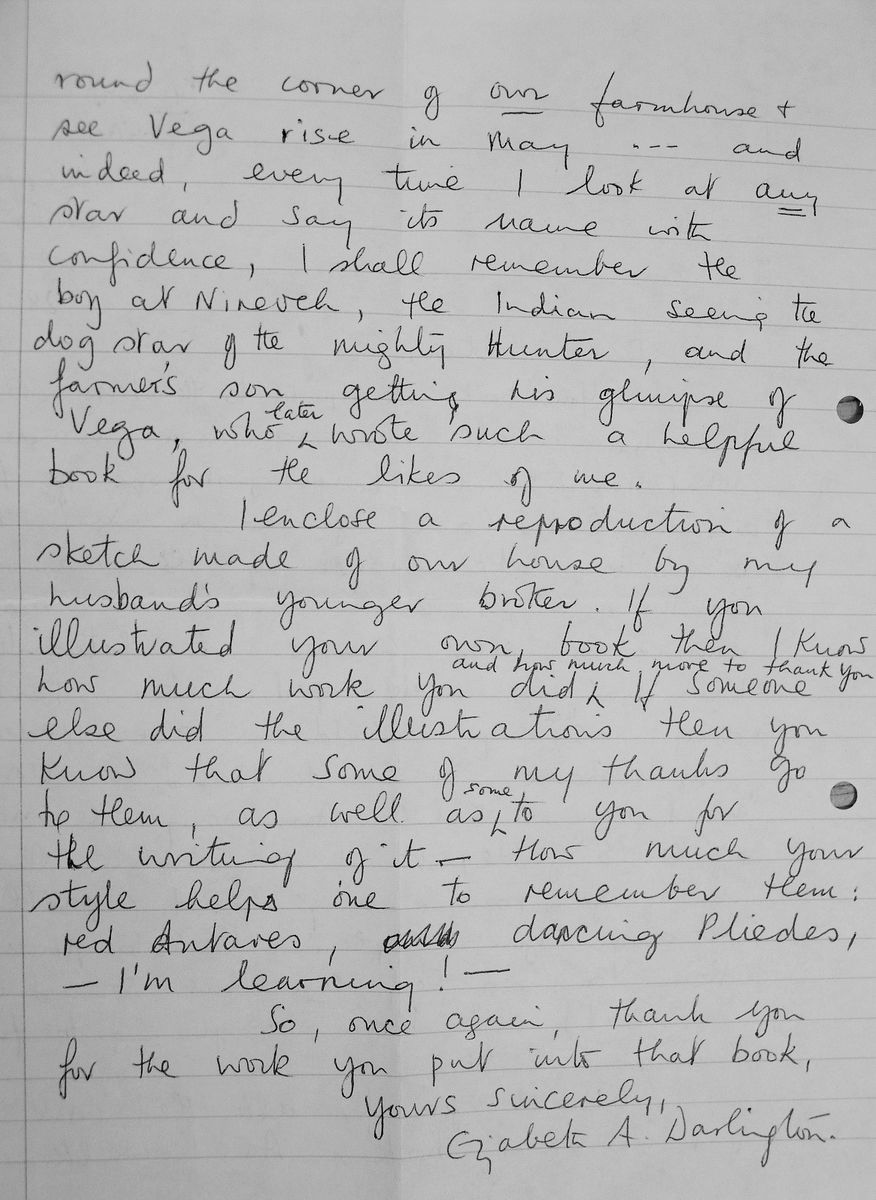 round the corner of our farmhouse +
see Vega rise in May --- and
indeed, every time I look at any
star and say its name with
confidence, I shall remember the
boy at Nineveh, the Indian seeing the
dog star of the mighty Hunter, and the
farmer's son getting his glimpse of
Vega, who later wrote such a helpful
book for the likes of me.
I enclose a reproduction of a
sketch made of our house by my
husband's younger brother. If you
illustrated your own book then I know
how much work you did and how much more to thank you If someone
else did the illustrations then you
know that some of my thanks go
to them, as well as some to you for
the writing of it — How much your
style helps one to remember them:
red Antares, dancing Pliedes,
— I'm learning! —
So, once again, thank you
for the work you put into that book,
yours sincerely,
A. Darlington.